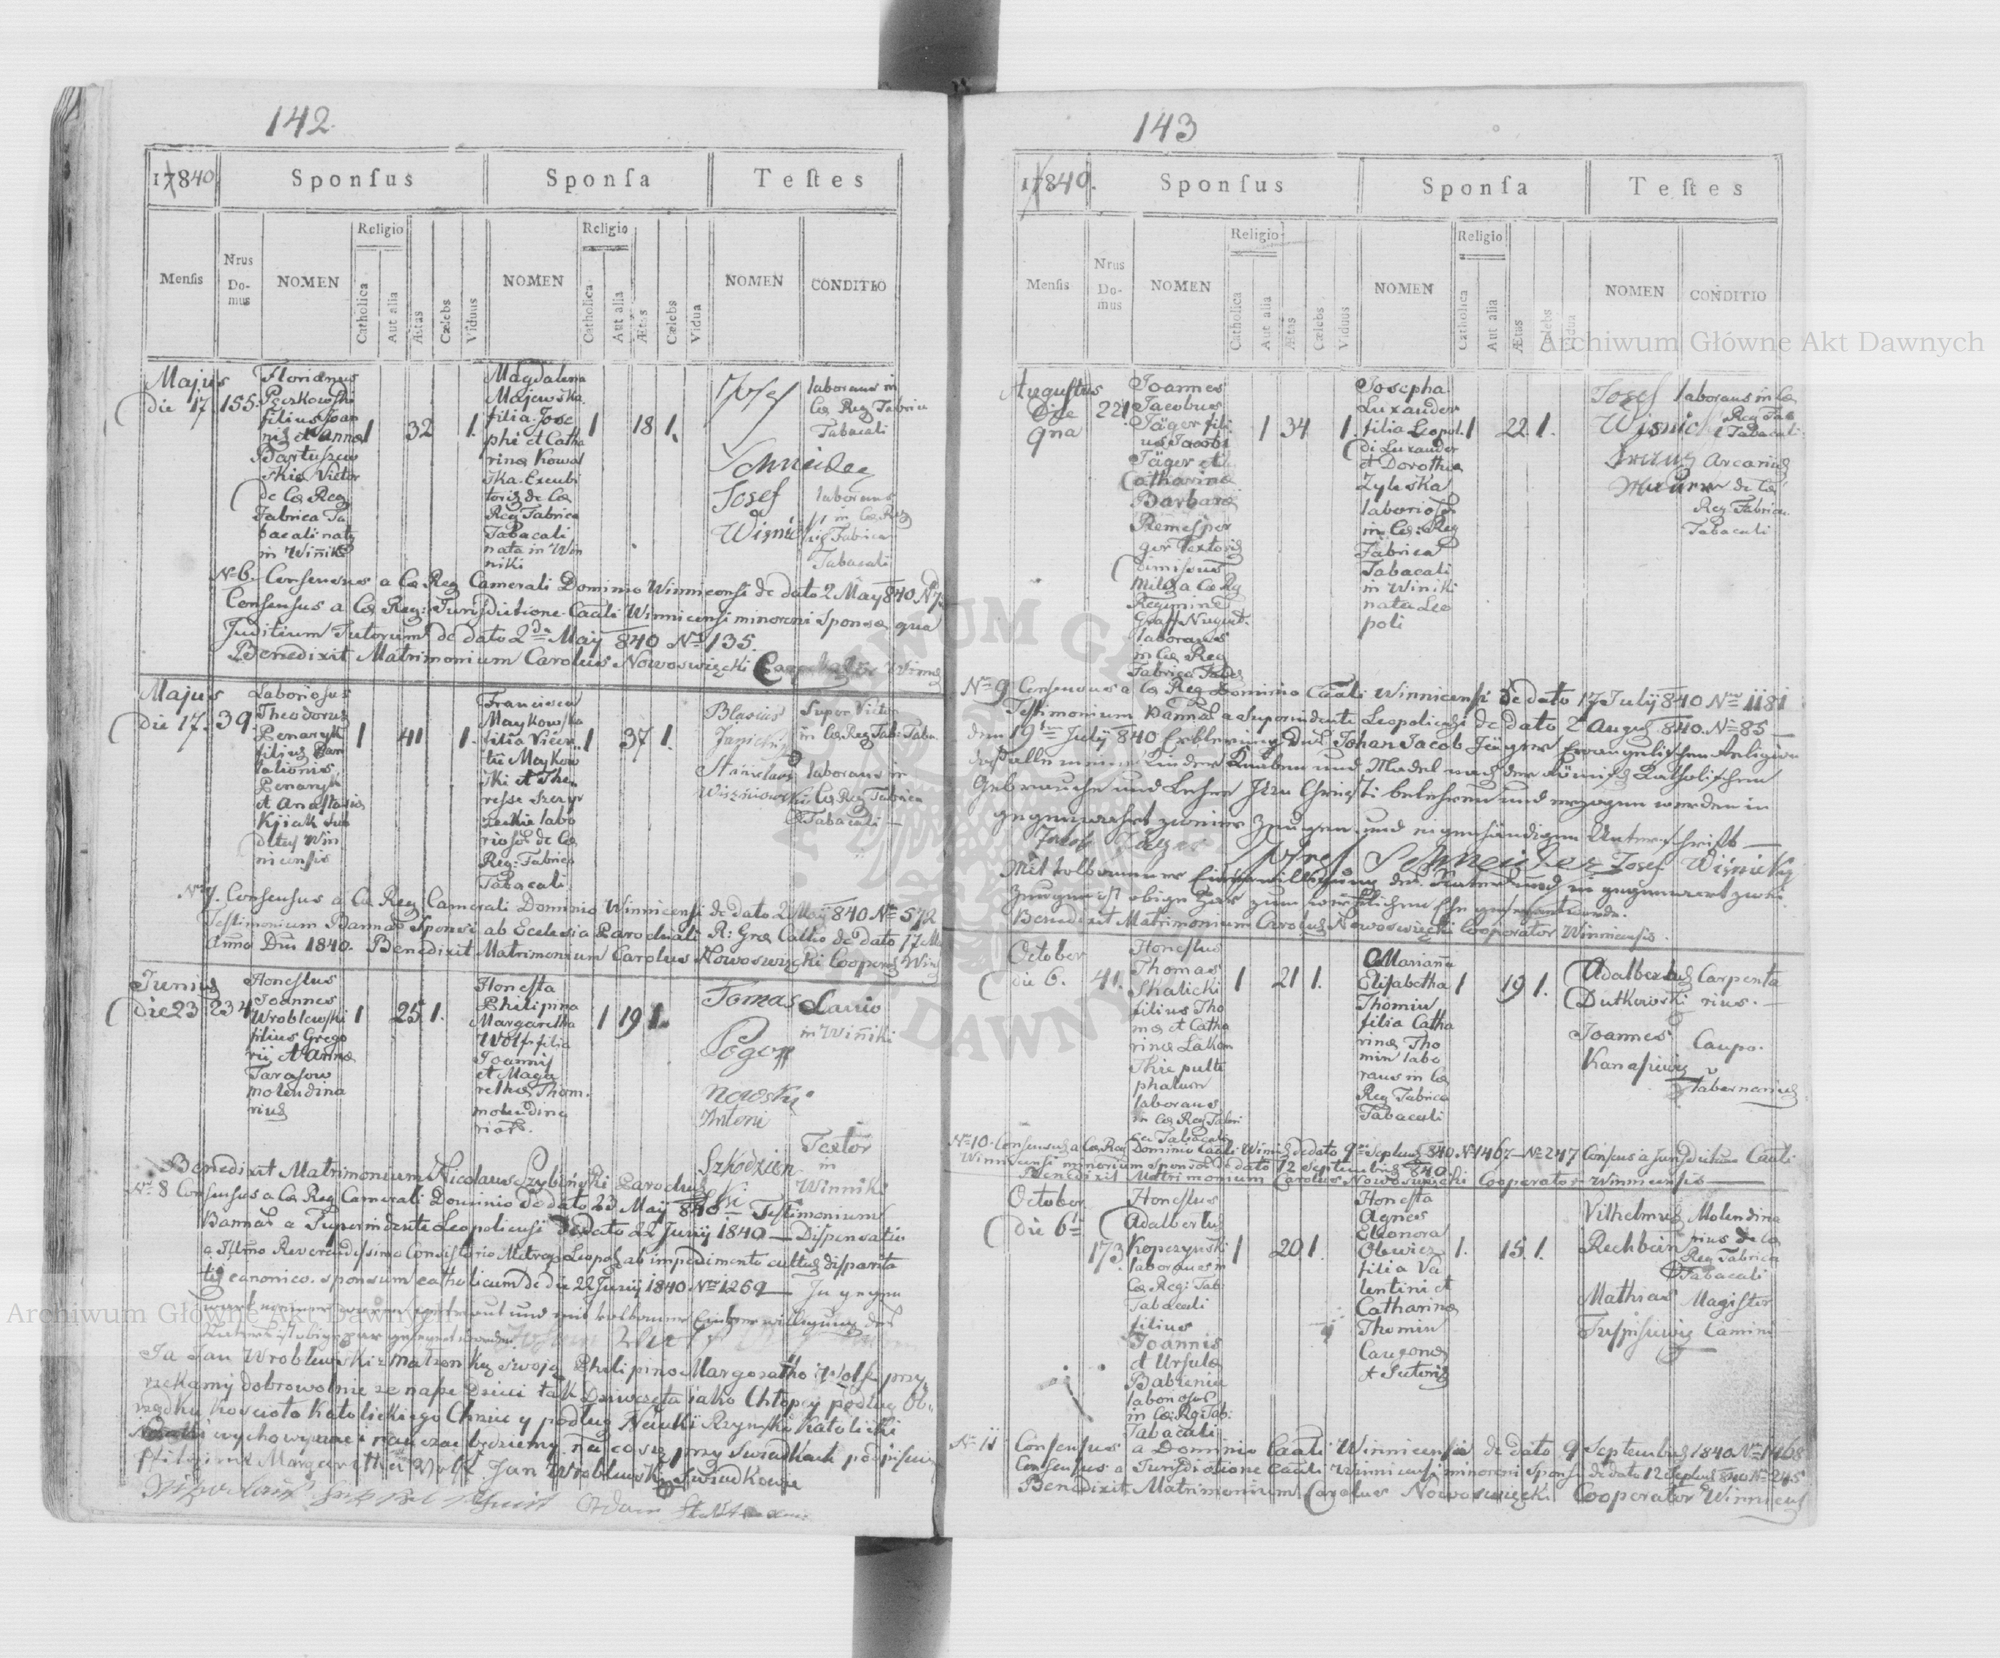 142
17840
Sponſus
Sponſa
Teſtes
Menſis
Nrus
Do-
mus
NOMEN
Religio
Catholica
Aut alia
Ætas
Cælebs
Viduus
NOMEN
Religio
Catholica
Aut alia
Ætas
Cælebs
Vidua
NOMEN
CONDITIO
Majus
die 17.
155.
Florianus
Pęczkowski
filius Joan
nis et Anna
Bartuszew
skie Victor
de Cæ Reg
Fabrica Ta
bacali natus
in Winiki
1
32
1.
Magdalena
Majewska
filia Jose
phi et Catha
rina Kowal
ska Excubi
toris de Cæ
Reg Fabrica
Tabacali
nata in Win
niki
1
18
1.
Josef
Schneider
laborans in
Cæ Reg Fabrica
Tabacali
Josef
Wisnicki
laborans
in Cæ Reg
Fabrica
Tabacali
No 6. Consensus a Cæ Reg Camerali Dominio Winnicensi de dato 2 May 840 No
Consensus a Cæ Reg: Jurisdictione Caāli Winnicensi minoreni Sponsæ qua
Juditium Tutorum de dato 2da May 840 No 135.
Benedixit Matrimonium Carolus Nowoswięcki
Majus
die 17.
39
Laboriosus
Theodorus
Penaryk
filius Pan
talionis
Penaryk
et Anastasia
Kijak Sub
ditus Win
nicensis
1
41
1.
Francisca
Maykowska
filia Vicen
tii Maykow
ski et The
resse
laboriosa de Cæ
Reg: Fabrica
Tabacali
1
37
1.
Blasius
Janicki
Super Victor
in Cæ Reg Fab: Taba
Stanislaus
Wiszniowski
laborans in
Cæ Reg Fabrica
Tabacali
No 7. Consensus a Cæ Reg Camerali Dominio Winnicensi de dato 2 May 840 No 572
Testimonium Bannal Sponsi ab Ecclesia Parochiali R: Græ Catho de dato 17 May
Anno Dni 1840. Benedixit Matrimonium Carolus Nowoswięcki Cooper Win
Junius
Die 23
234
Honestus
Joannes
Wroblewski
filius Grego
rij et Anna
Tarasow
molendina
rius
1
25
1.
Honesta
Philipina
Margaretha
Wolf filia
Joannis
et Marga
retha Thom.
molendina
rios.
1
19
1.
Tomas
Pogor
nowski
Lanio
in Winiki
Antoni
Szkodzien
ski
Textor
in
Winniki
Benedixit Matrimonium Nicolaus Szybiński Parochus
No 8 Consensus a Cæ Reg Camerali Dominio de dato 23 May 840 Testimonium
Bannal a Superindente Leopoliensi de dato 22 Junij 1840 — Dispensatio
a Illmo Reverendissimo Consistorio Metrop Leopol ab impedimento cultus dispari
tatis canonico. sponsum catholicum de die 22 Junij 1840 No 1269
Ja Jan Wroblewski z małzonką swoją Philipina Margoratha Wolf przy
rzekamy dobrowolnie ze nasze Dzieci tak Dziwczęta iako Chłopcy podług Ob
rządku Koscioła Katolickiego Chrzcic y podług Nauki Rzymski Katolicki
wychowywac i nauczac będziemy na co się przy swiadkach podpisuię
Philipina Margaretha Wolf Jan Wroblewski Swiadkowie
143
17840.
Sponſus
Sponſa
Teſtes
Menſis
Nrus
Do-
mus
NOMEN
Religio
Catholica
Aut alia
Ætas
Cælebs
Viduus
NOMEN
Religio
Catholica
Aut alia
Ætas
Cælebs
Vidua
NOMEN
CONDITIO
Augustus
Die
9na
221
Joannes
Jacobus
Jäger fili
us Jacobi
Jäger et
Catharina
Barbara
Remesper
ger Textoris
dimissus
Miles a Cæ Rg
Regimine
Graff Nugent.
laborans
in Cæ Reg
Fabrica Tabac
1
34
1.
Josepha
Luxander
filia Leopol
di Luxander
et Dorothea
Zyleska
laboriosa
in Cæ: Reg
Fabrica
Tabacali
in Winiki
nata Leo
poli
1
22
1.
Josef
Wisnicki
laborans in Cæ
Reg Fab
Tabacali
Arcarius
de Cæ
Reg Fabrica
Tabacali
No 9 Consensus a Cæ Reg Dominio Caāli Winnicensi de dato 17 July 840 Nro 1181
Testimonium Bannal a Superindente Leopoliensi de dato 2 Augus 840. No 85 —
den 19ten July 840 Erklerung Das Johan Jacob Jäger Ewangelischen Religion
das alle meine Kinder Knaben und Madel nach der Römisch Katholischen
Gebrauche und Lehre Jesu Christi belehren und erzogen werden in
gegenwart zweier Zeugen und eigenhändigen Unterschrift —
Jacob Jäger Josef Schneider Josef Wisnicki
Benedixit Matrimonium Carolus Nowoswięcki Cooperator Winnicensis.
October
die 6.
41.
Honestus
Thomas
Skalicki
filius Tho
ma et Catha
rina Lakom
skie
laborans
in Cæ Reg Fabri
ca Tabacali
1
21
1.
Marianna
Elisabetha
Thomin
filia Catha
rina Tho
min labo
rans in Cæ
Reg Fabrica
Tabacali
1
19
1.
Adalbertus
Dutkowski
Carpenta
rius. —
Joannes
Kanasiewicz
Caupo.
Tabernarius
No 10. Consensus a Cæ Reg Dominio Caāli Winnic de dato 9 Septemb 840. No 1467 — No 247 Consens a Jurisdictione Caāli
Winnicensi minorium sponsos de dato 12 Septembris 840.
Benedixit Matrimonium Carolus Nowoswięcki Cooperator Winnicensis
October
die 6ta
173
Honestus
Adalbertus
Kopczynski
laborans in
Cæ Reg: Fab
Tabacali
filius
Joannis
et Ursula
Babienin
laboriosus
in Cæ: Rg: Fab:
Tabacali
1
20
1.
Honesta
Agnes
Eleonora
Olewicz
filia Va
lentini et
Catharina
Thomin
Caupona
et Sutoris
1.
15
1.
Vilhelmus
Rechbein
Molendina
rius de Cæ
Reg Fabrica
Tabacali
Mathias
Magister
Camini
No 11 Consensus a Dominio Caāli Winnicensi de dato 9 Septembris 1840 No 1468
Consensus a Jurisdictione Caāli Winnicensi minoreni Sponsi de dato 12 Septemb 840 No 245
Benedixit Matrimonium Carolus Nowoswięcki Cooperator Winnicensis
Archiwum Główne Akt Dawnych
Archiwum Główne Akt Dawnych